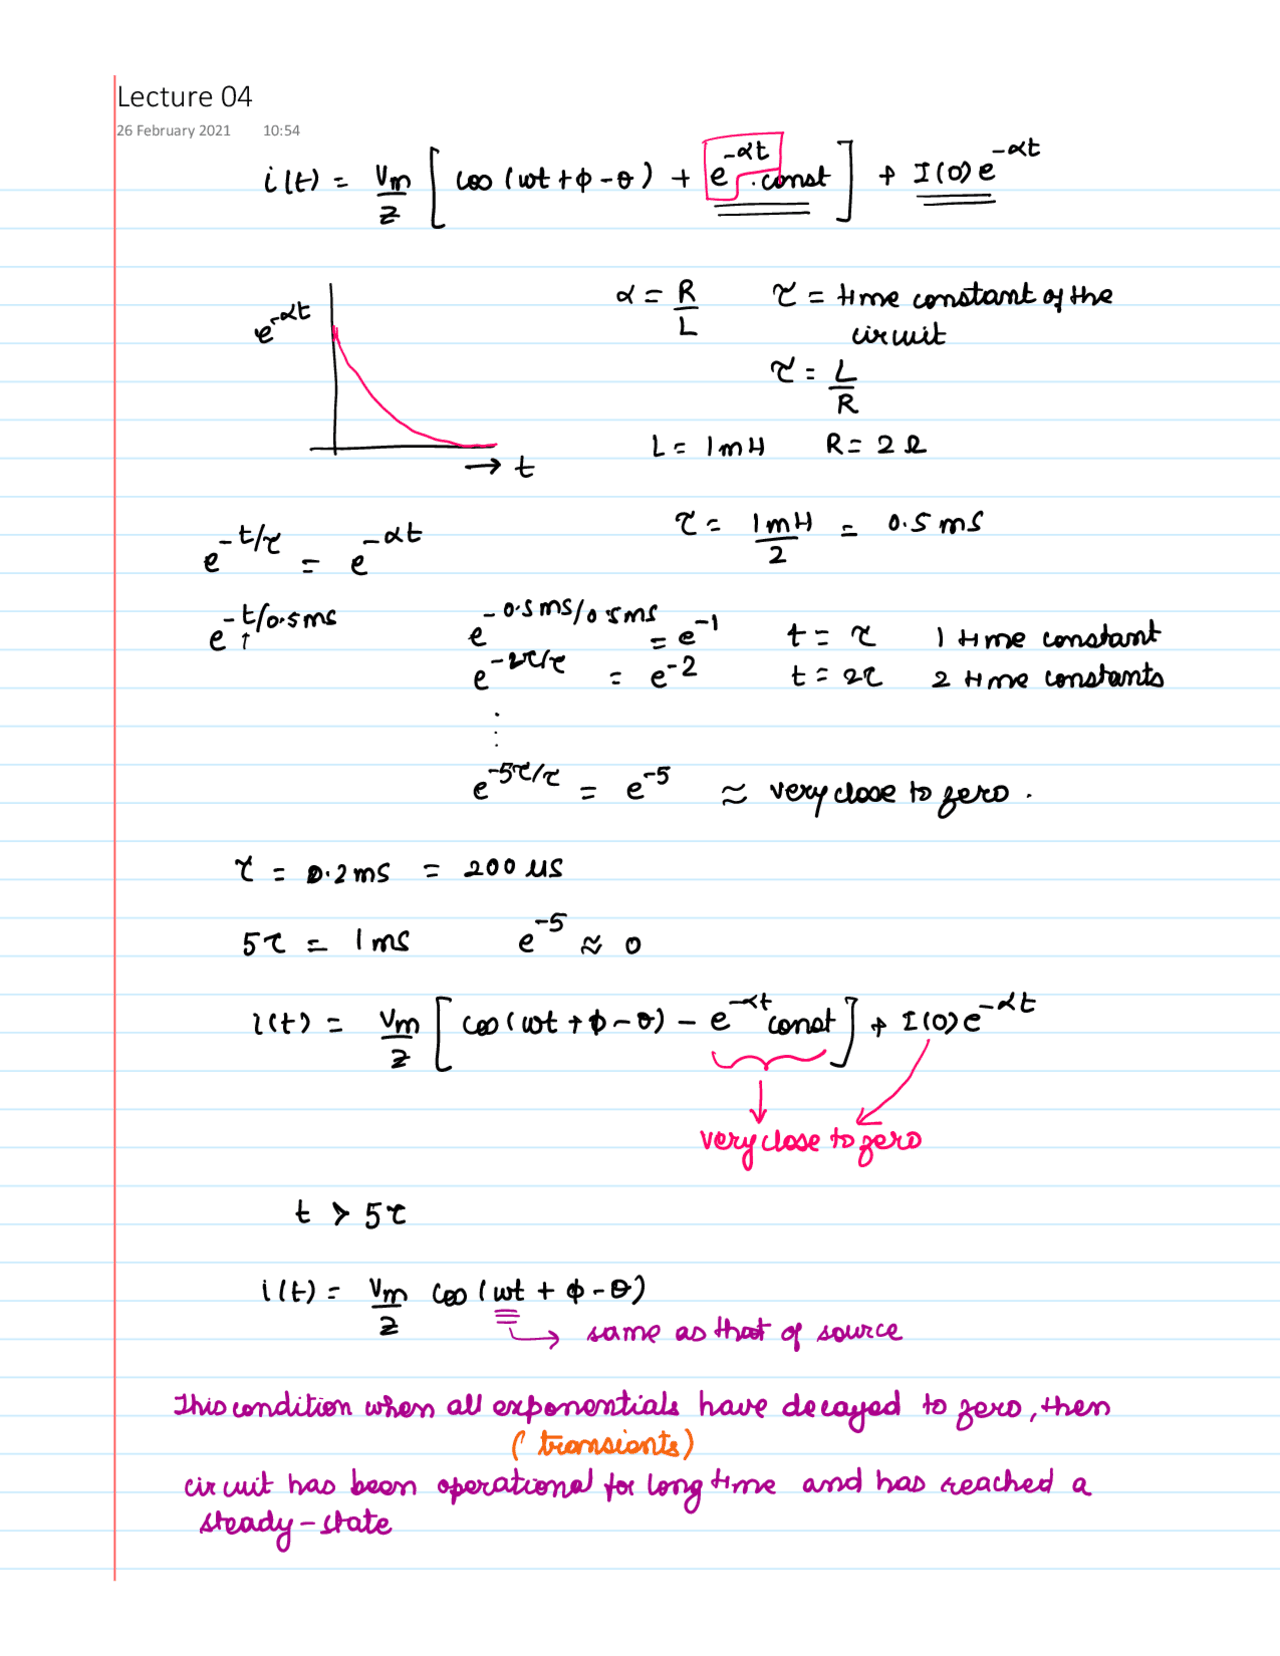 Lecture 04
26 February 2021 10:54
i(t) = Vm/Z [ cos(ωt + φ - θ) + e^-αt . const ] + I(0) e^-αt
e^-αt
α = R/L τ = time constant of the
circuit
τ = L/R
L = 1mH R = 2Ω
→ t
τ = 1mH/2 = 0.5ms
e^-t/τ = e^-αt
e^-t/0.5ms ↑
e^-0.5ms/0.5ms = e^-1 t = τ 1 time constant
e^-2τ/τ = e^-2 t = 2τ 2 time constants
⋮
e^-5τ/τ = e^-5 ≈ very close to zero.
τ = 0.2ms = 200 μs
5τ = 1ms e^-5 ≈ 0
i(t) = Vm/Z [ cos(ωt + φ - θ) - e^-αt const ] + I(0) e^-αt
very close to zero
t > 5τ
i(t) = Vm/Z cos(ωt + φ - θ)
→ same as that of source
This condition when all exponentials have decayed to zero, then
(transients)
circuit has been operational for long time and has reached a
steady-state